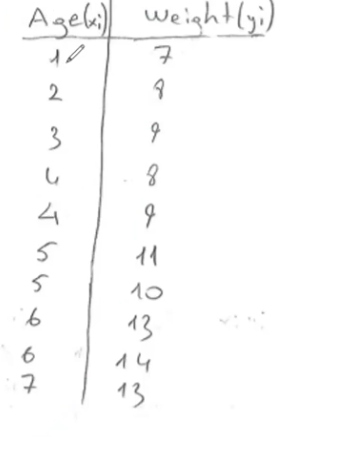 Age(xi) Weight(yi)
1 7
2 8
3 9
4 8
4 9
5 11
5 10
6 13
6 14
7 13